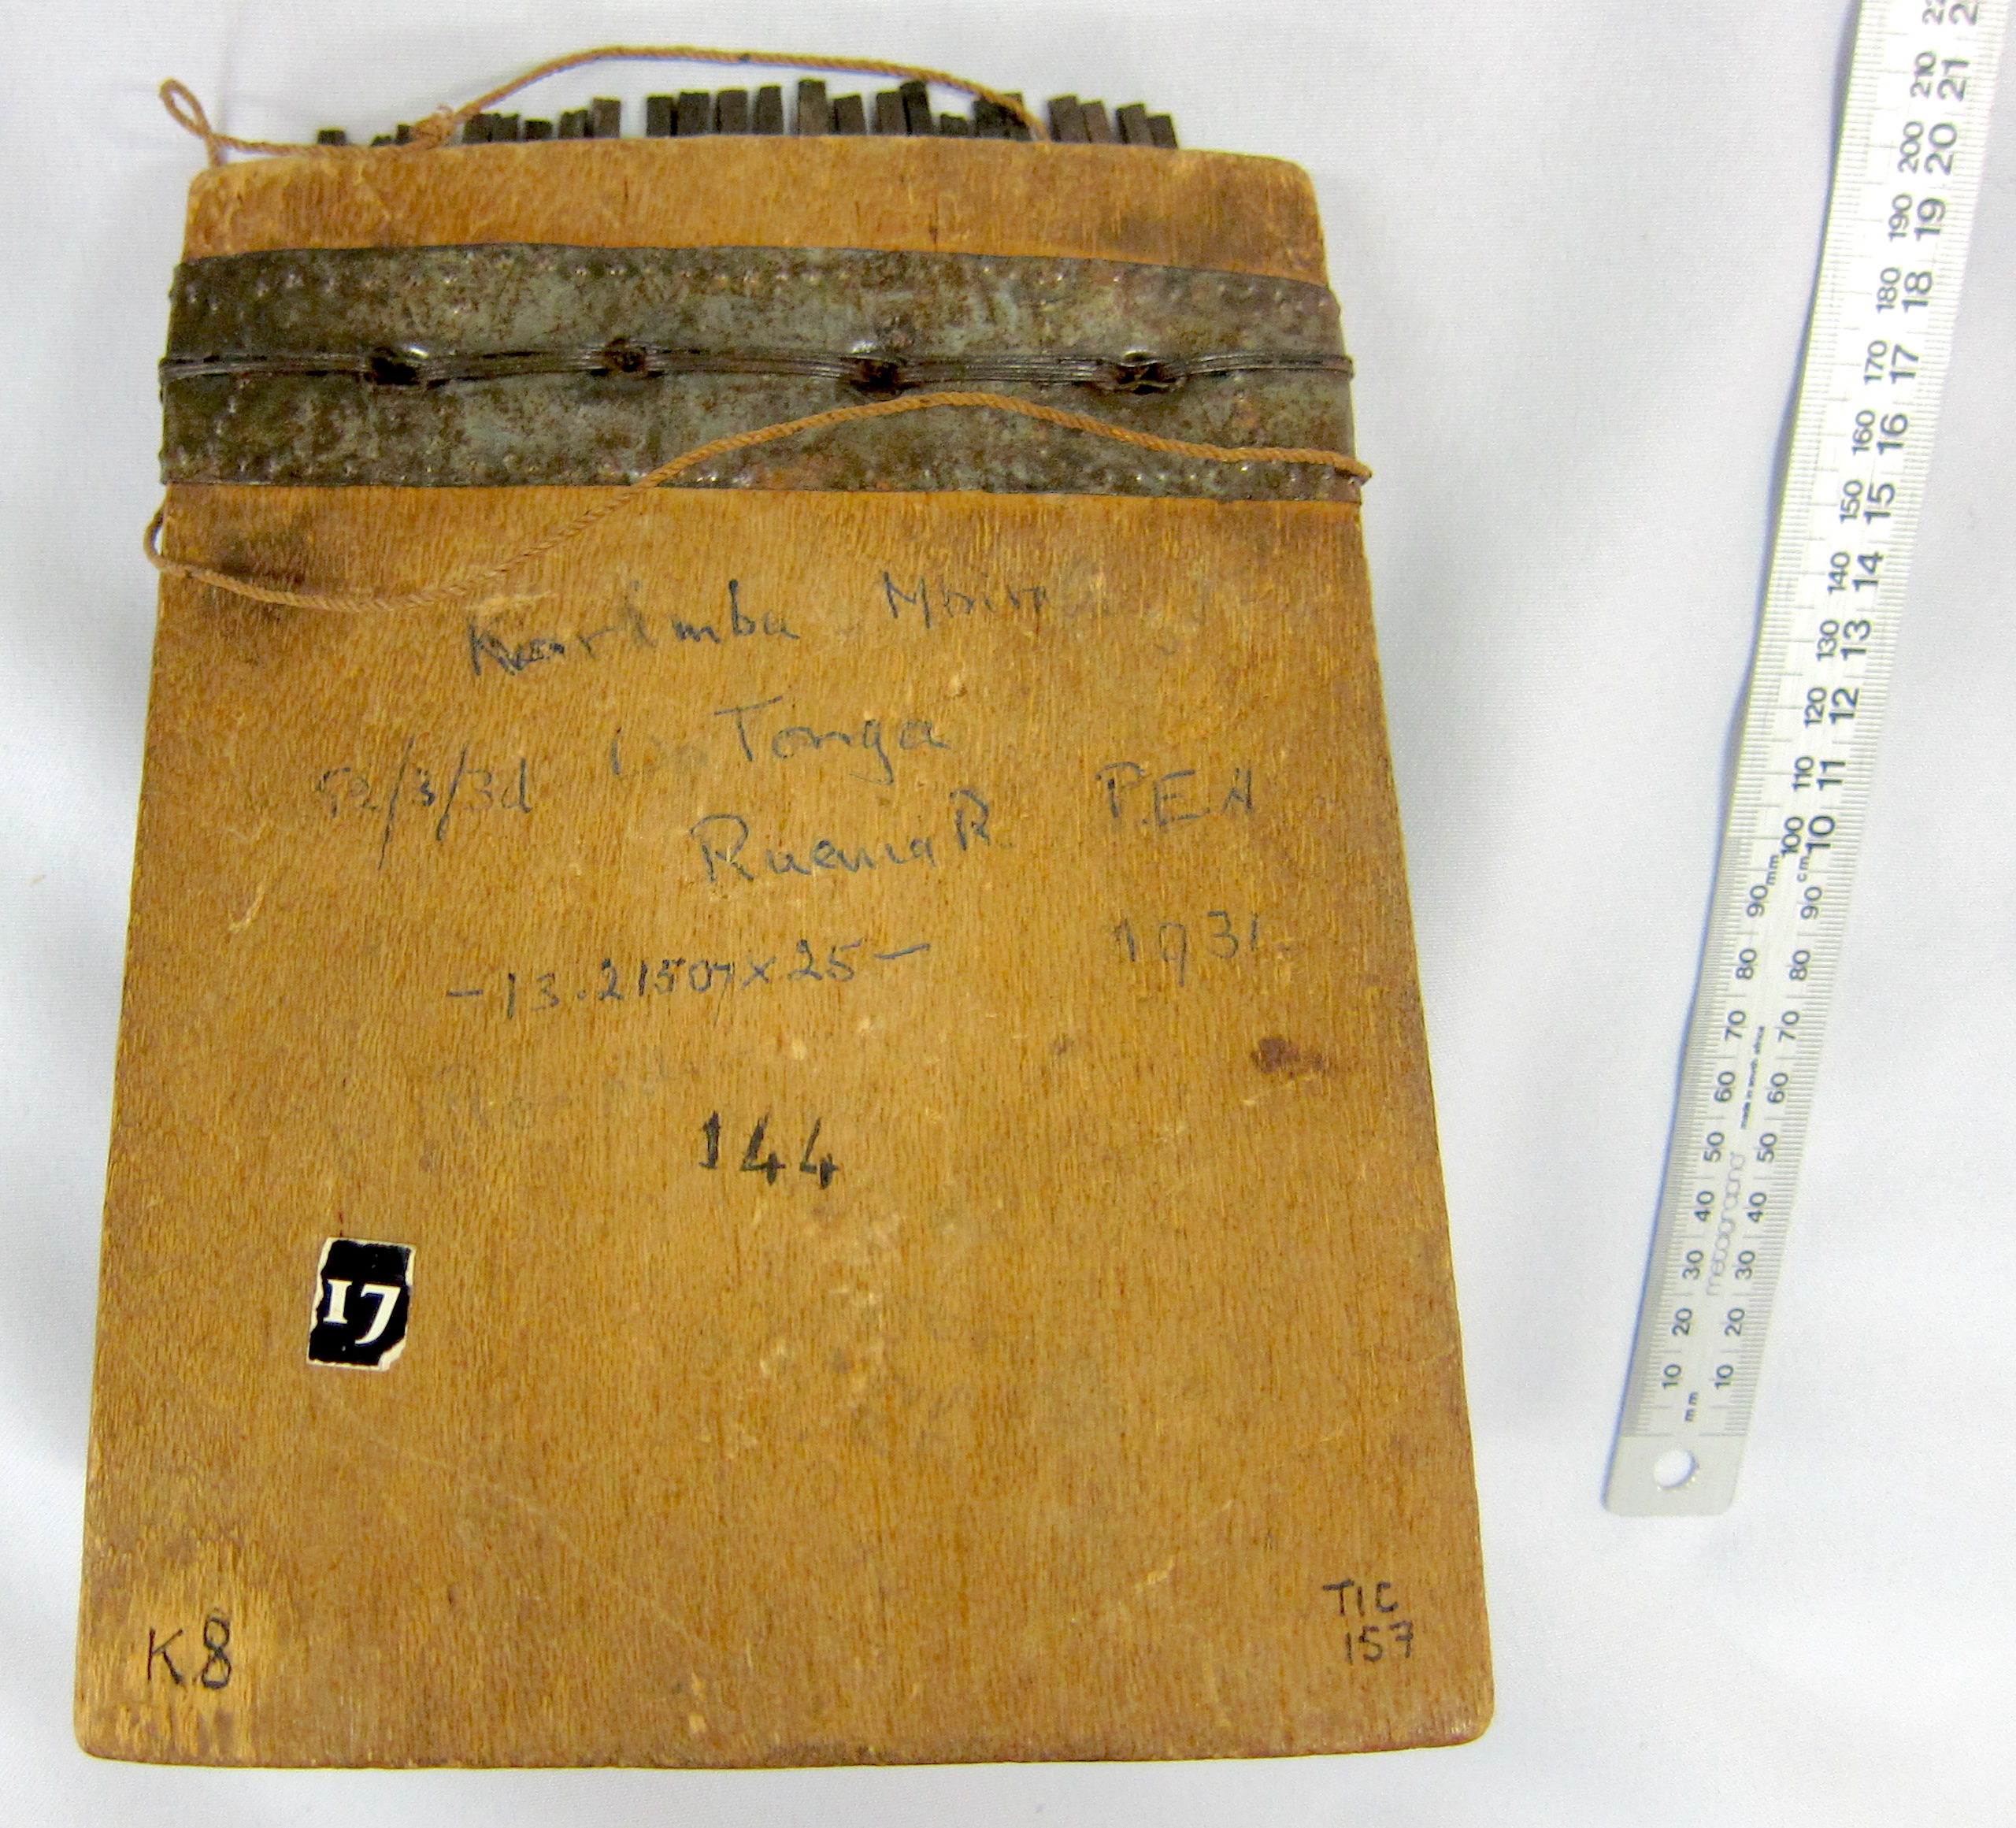 Karimba Mbira
Tonga
Ruenia R. P.E.H
1931.
144
17
K8
TIC
157
mm 10 20 30 40 50 60 70 80 90 mm 100 110 120 130 140 150 160 170 180 190 200 210
10 20 30 40 50 60 70 80 90 cm 10 11 12 13 14 15 16 17 18 19 20 21
made in south africa